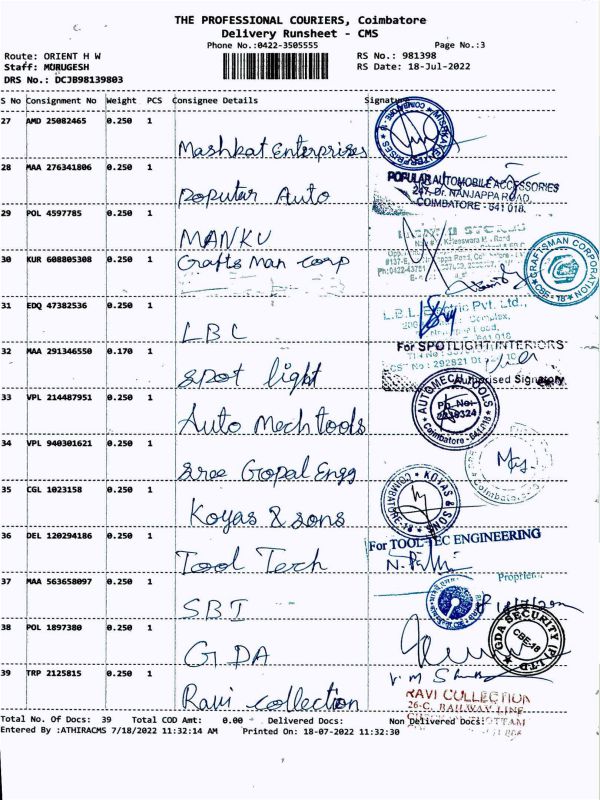 THE PROFESSIONAL COURIERS, Coimbatore
Delivery Runsheet - CMS
Phone No.:0422-3505555 Page No.:3
Route: ORIENT H W RS No.: 981398
Staff: MURUGESH RS Date: 18-Jul-2022
DRS No.: DCJB98139803
S No Consignment No Weight PCS Consignee Details Signature
27 AMD 25082465 0.250 1
Mashkat Enterprises
28 MAA 276341806 0.250 1
Poputar Auto
POPULAR AUTOMOBILE ACCESSORIES
267, Dr. NANJAPPA ROAD,
COIMBATORE - 641 018.
29 POL 4597785 0.250 1
MANKU
30 KUR 608805308 0.250 1
Grafts Man corp
GRAFTSMAN CORPORATION
CBE - 18.
31 EDQ 47382536 0.250 1
LBC
L.B.L. Electric Pvt. Ltd.,
32 MAA 291346550 0.170 1
Spot light
For SPOTLIGHT INTERIORS
Authorised Signatory
33 VPL 214487951 0.250 1
Auto Mech tools
AUTOMECH TOOLS
Coimbatore - 641 018
34 VPL 940301621 0.250 1
Sree Gopal Engg
35 CGL 1023158 0.250 1
Koyas & sons
KOYAS & SONS
COIMBATORE-18
36 DEL 120294186 0.250 1
Tool Tech
For TOOL TEC ENGINEERING
37 MAA 563658097 0.250 1
SBI
38 POL 1897380 0.250 1
GDA
GDA SECURITY (P) LTD
CBE-18
39 TRP 2125815 0.250 1
Ravi collection
RAVI COLLECTION
26-C, RAILWAY LINE
Total No. Of Docs: 39 Total COD Amt: 0.00 Delivered Docs: Non Delivered Docs:
Entered By :ATHIRACMS 7/18/2022 11:32:14 AM Printed On: 18-07-2022 11:32:30